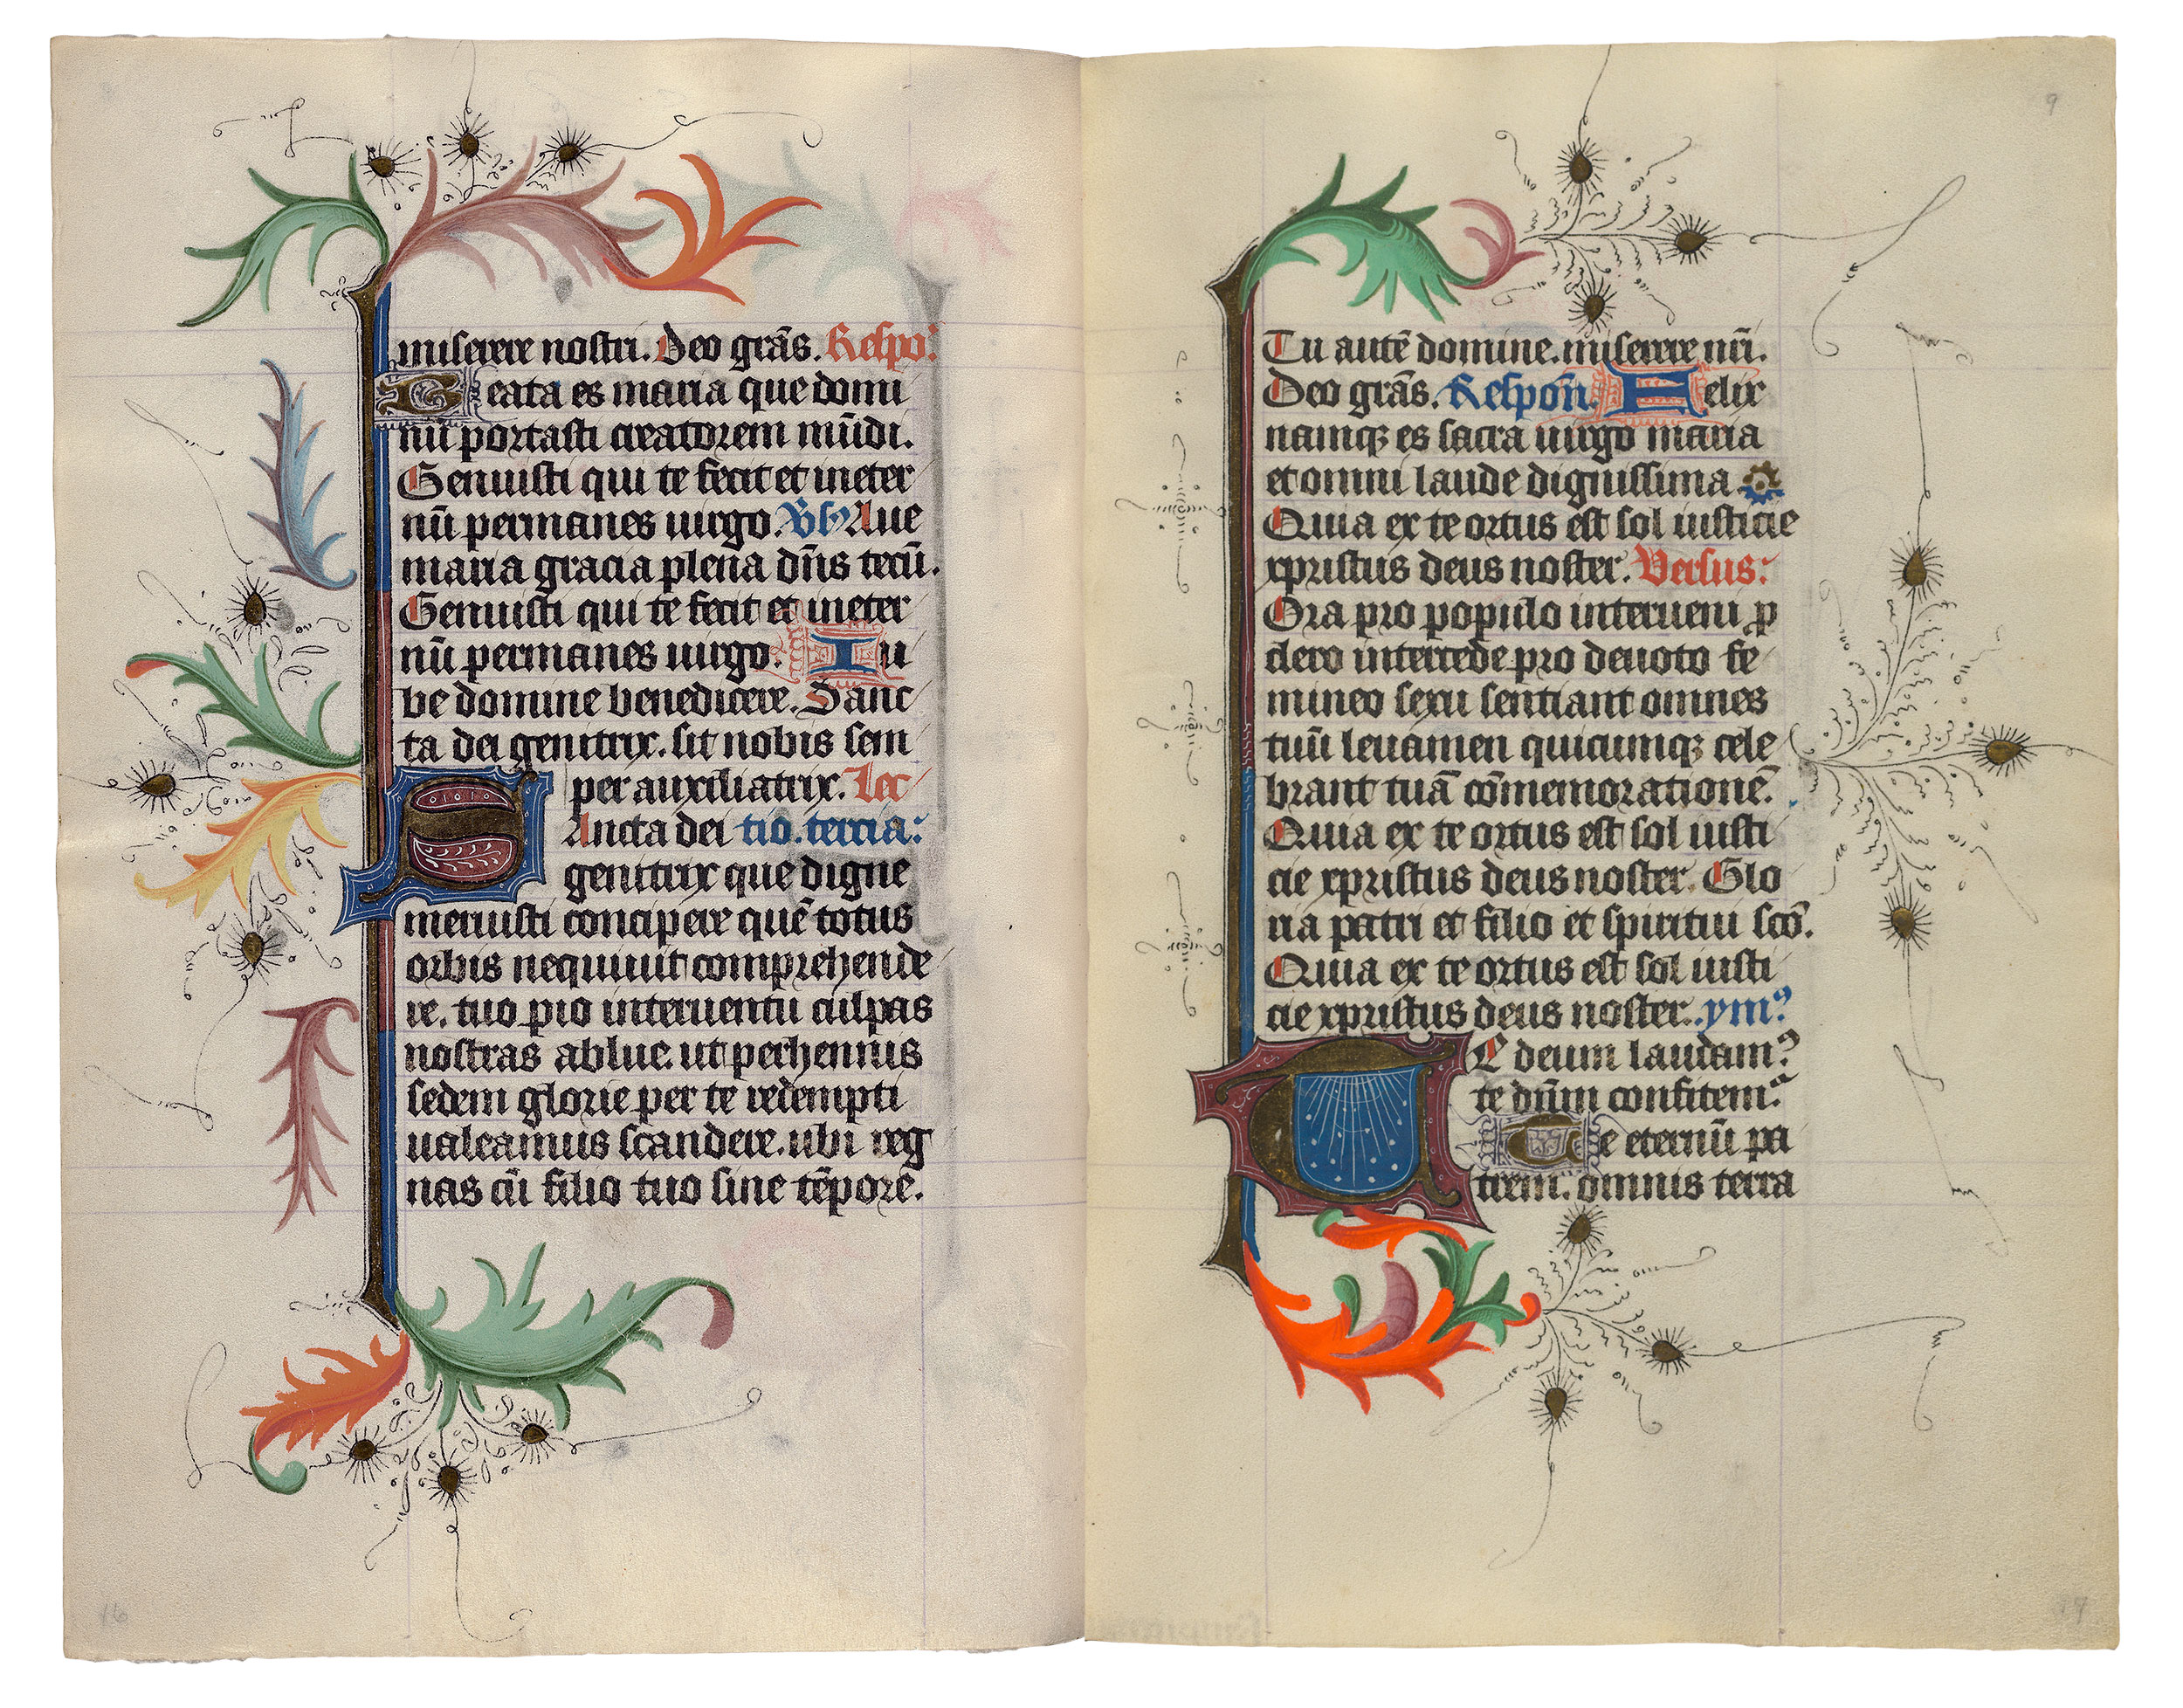 miserere nostri. Deo gr̄as. Respo:
Beata es maria que domi
nū portasti creatorem mūdi.
Genuisti qui te fecit et ineter
nū permanes uirgo. Vs Aue
maria gracia plena dn̄s tecū.
Genuisti qui te fecit et ineter
nū permanes uirgo. Iu
be domine benedicere. Sanc
ta dei genitrix. sit nobis sem
per auxiliatrix. Lec
Sancta dei tio. tercia:
genitrix que digne
meruisti concipere quē totus
orbis nequiuit comprehende
re. tuo pio interuentu culpas
nostras ablue. ut perhennis
sedem glorie per te redempti
ualeamus scandere. ubi reg
nas cū filio tuo sine tēpore.
16
9
Tu autē domine. miserere nr̄i.
Deo gr̄as. Respōn. Felix
namqꝫ es sacra uirgo maria
et omni laude dignissima
Quia ex te ortus est sol iusticie
xpristus deus noster. Versus:
Ora pro populo interueni ꝓ
clero intercede pro deuoto fe
mineo sexu sentiant omnes
tuū leuamen quicumqꝫ cele
brant tuā cōmemorationē.
Quia ex te ortus est sol iusti
cie xpristus deus noster. Glo
ria patri et filio et spiritui scō.
Quia ex te ortus est sol iusti
cie xpristus deus noster. ymꝰ
TE deum laudamꝰ
te dn̄m confitemꝰ
Te eternū pa
trem. omnis terra